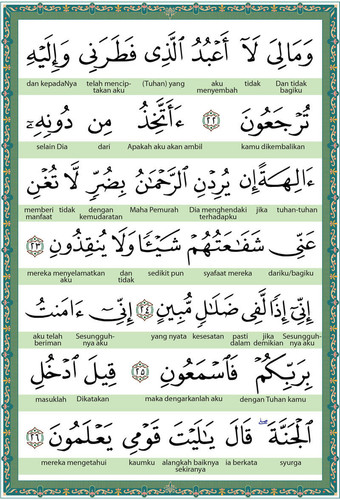 وَمَالِىَ لَآ أَعْبُدُ ٱلَّذِى فَطَرَنِى وَإِلَيْهِ
dan kepadaNya telah mencip- (Tuhan) yang aku tidak Dan tidak
takan aku menyembah bagiku
تُرْجَعُونَ ٢٢ ءَأَتَّخِذُ مِن دُونِهِۦٓ
selain Dia dari Apakah aku akan ambil kamu dikembalikan
ءَالِهَةً إِن يُرِدْنِ ٱلرَّحْمَـٰنُ بِضُرٍّ لَّا تُغْنِ
memberi tidak dengan Maha Pemurah Dia menghendaki jika tuhan-tuhan
manfaat kemudaratan terhadapku
عَنِّى شَفَـٰعَتُهُمْ شَيْـًٔا وَلَا يُنقِذُونِ ٢٣
mereka menyelamatkan dan sedikit pun syafaat mereka dariku/bagiku
aku tidak
إِنِّىٓ إِذًا لَّفِى ضَلَـٰلٍ مُّبِينٍ ٢٤ إِنِّىٓ ءَامَنتُ
aku telah Sesungguh- yang nyata kesesatan pasti jika Sesungguh-
beriman nya aku dalam demikian nya aku
بِرَبِّكُمْ فَٱسْمَعُونِ ٢٥ قِيلَ ٱدْخُلِ
masuklah Dikatakan maka dengarkanlah aku dengan Tuhan kamu
ٱلْجَنَّةَ ۖ قَالَ يَـٰلَيْتَ قَوْمِى يَعْلَمُونَ ٢٦
mereka mengetahui kaumku alangkah baiknya ia berkata syurga
sekiranya